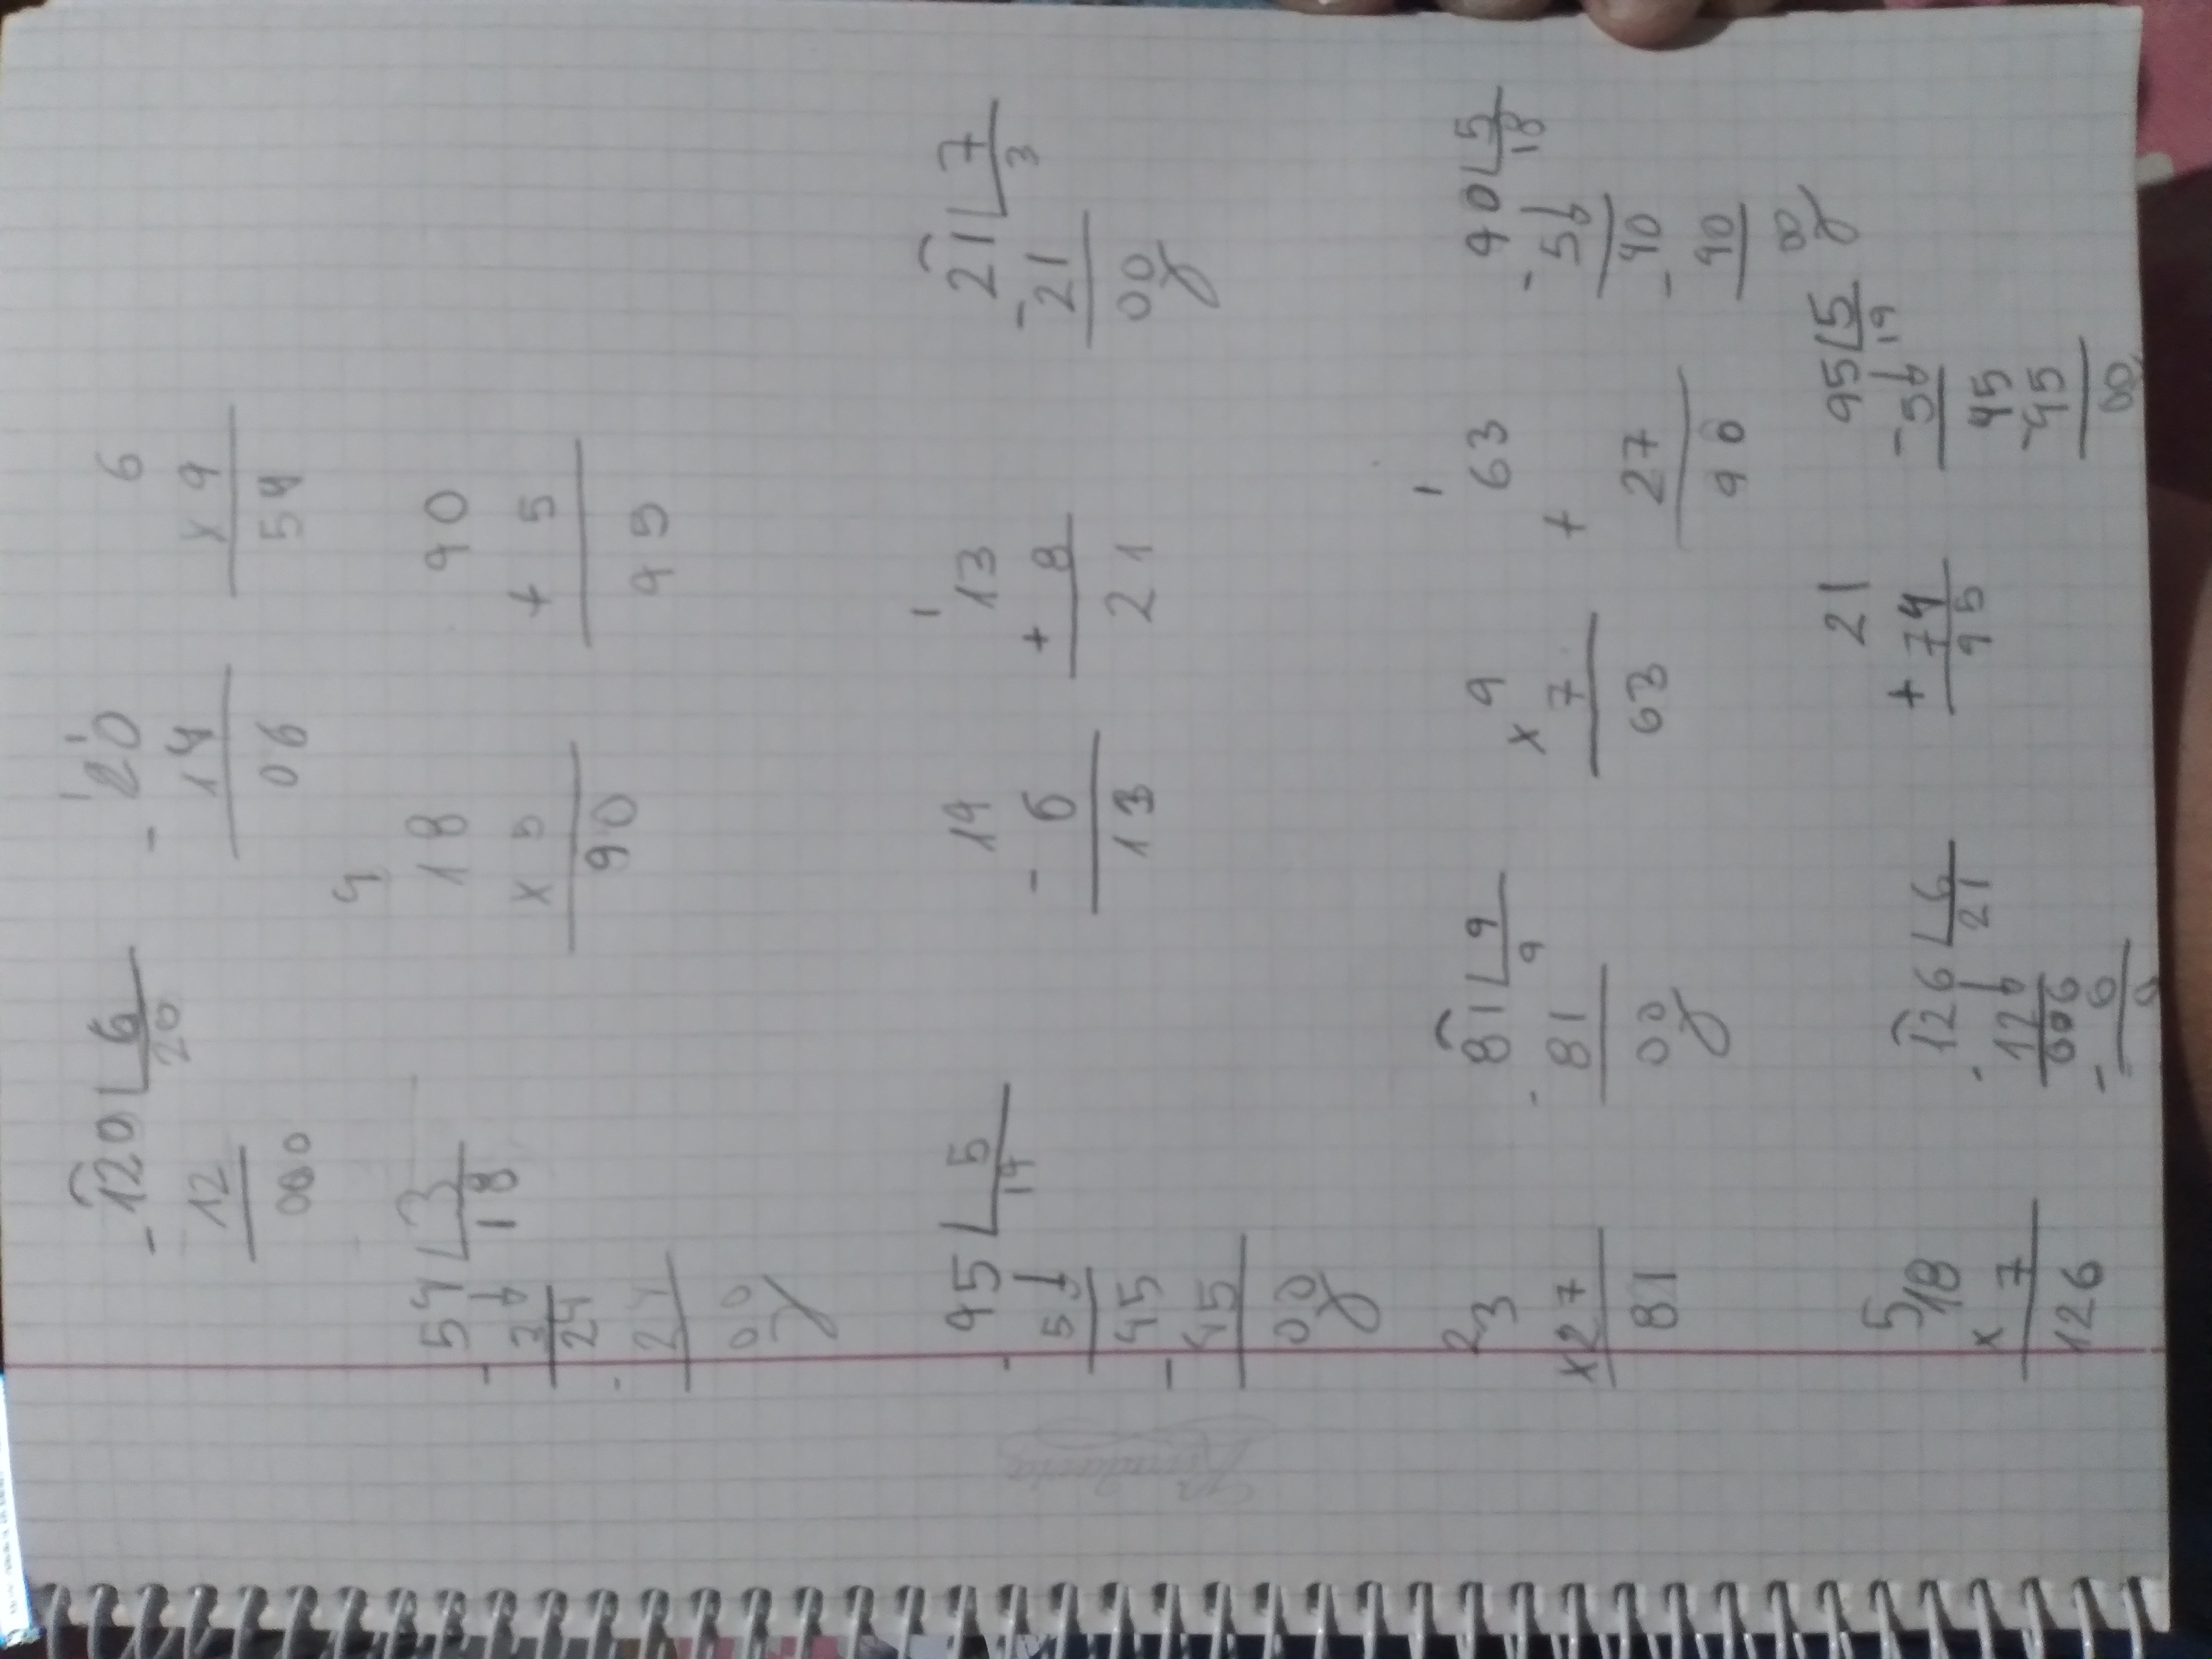 - 120 6
12 20
000
1 1
- 20
14
06
6
x 9
54
- 54 3
3 18
24
- 24
00
4
18
x 5
90
90
+ 5
95
- 95 5
5 19
45
- 45
00
19
- 6
13
1
13
+ 8
21
21 7
- 21 3
00
2
3
x27
81
81 9
- 81 9
00
9
x 7
63
1
63
+
27
90
90 5
- 5 18
40
- 40
00
5
18
x 7
126
126 6
- 12 21
006
- 6
0
21
+ 74
95
95 5
- 5 19
45
- 45
00